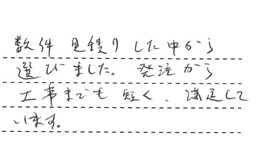 数件見積りした中から
選びました。発注から
工事までも短く、満足して
います。